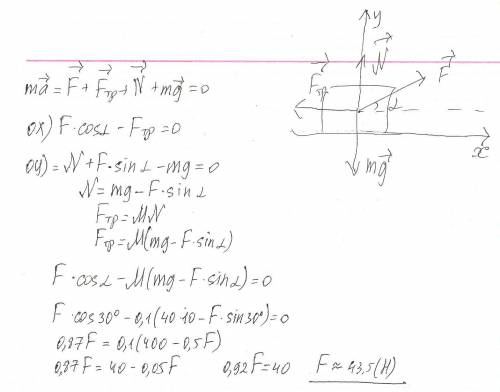 y
N⃗
F⃗
Fтр⃗
α
mg⃗
x⃗
ma⃗ = F⃗ + Fтр⃗ + N⃗ + mg⃗ = 0
OX) F·cosα - Fтр = 0
OY) = N + F·sinα - mg = 0
N = mg - F·sinα
Fтр = MN
Fтр = M(mg - F·sinα)
F·cosα - M(mg - F·sinα) = 0
F·cos30° - 0,1(40·10 - F·sin30°) = 0
0,87F = 0,1(400 - 0,5F)
0,87F = 40 - 0,05F 0,92F = 40 F ≈ 43,5(H)